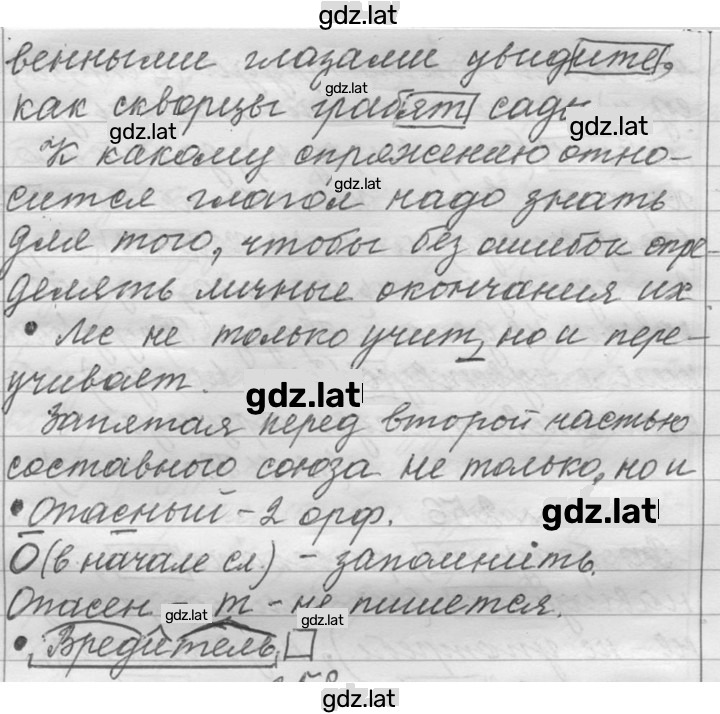 gdz.lat
венными глазами увидите,
gdz.lat
как скворцы грабят сады
gdz.lat
gdz.lat
К какому спряжению отно-
gdz.lat
сится глагол надо знать
для того, чтобы без ошибок опре-
делять личные окончания их
• Лес не только учит, но и пере-
учивает.
gdz.lat
Запятая перед второй частью
составного союза не только, но и
• Опасный - 2 орф.
gdz.lat
О (в начале сл.) - запомнить.
Опасен - т - не пишется.
gdz.lat
gdz.lat
• Вредитель
gdz.lat